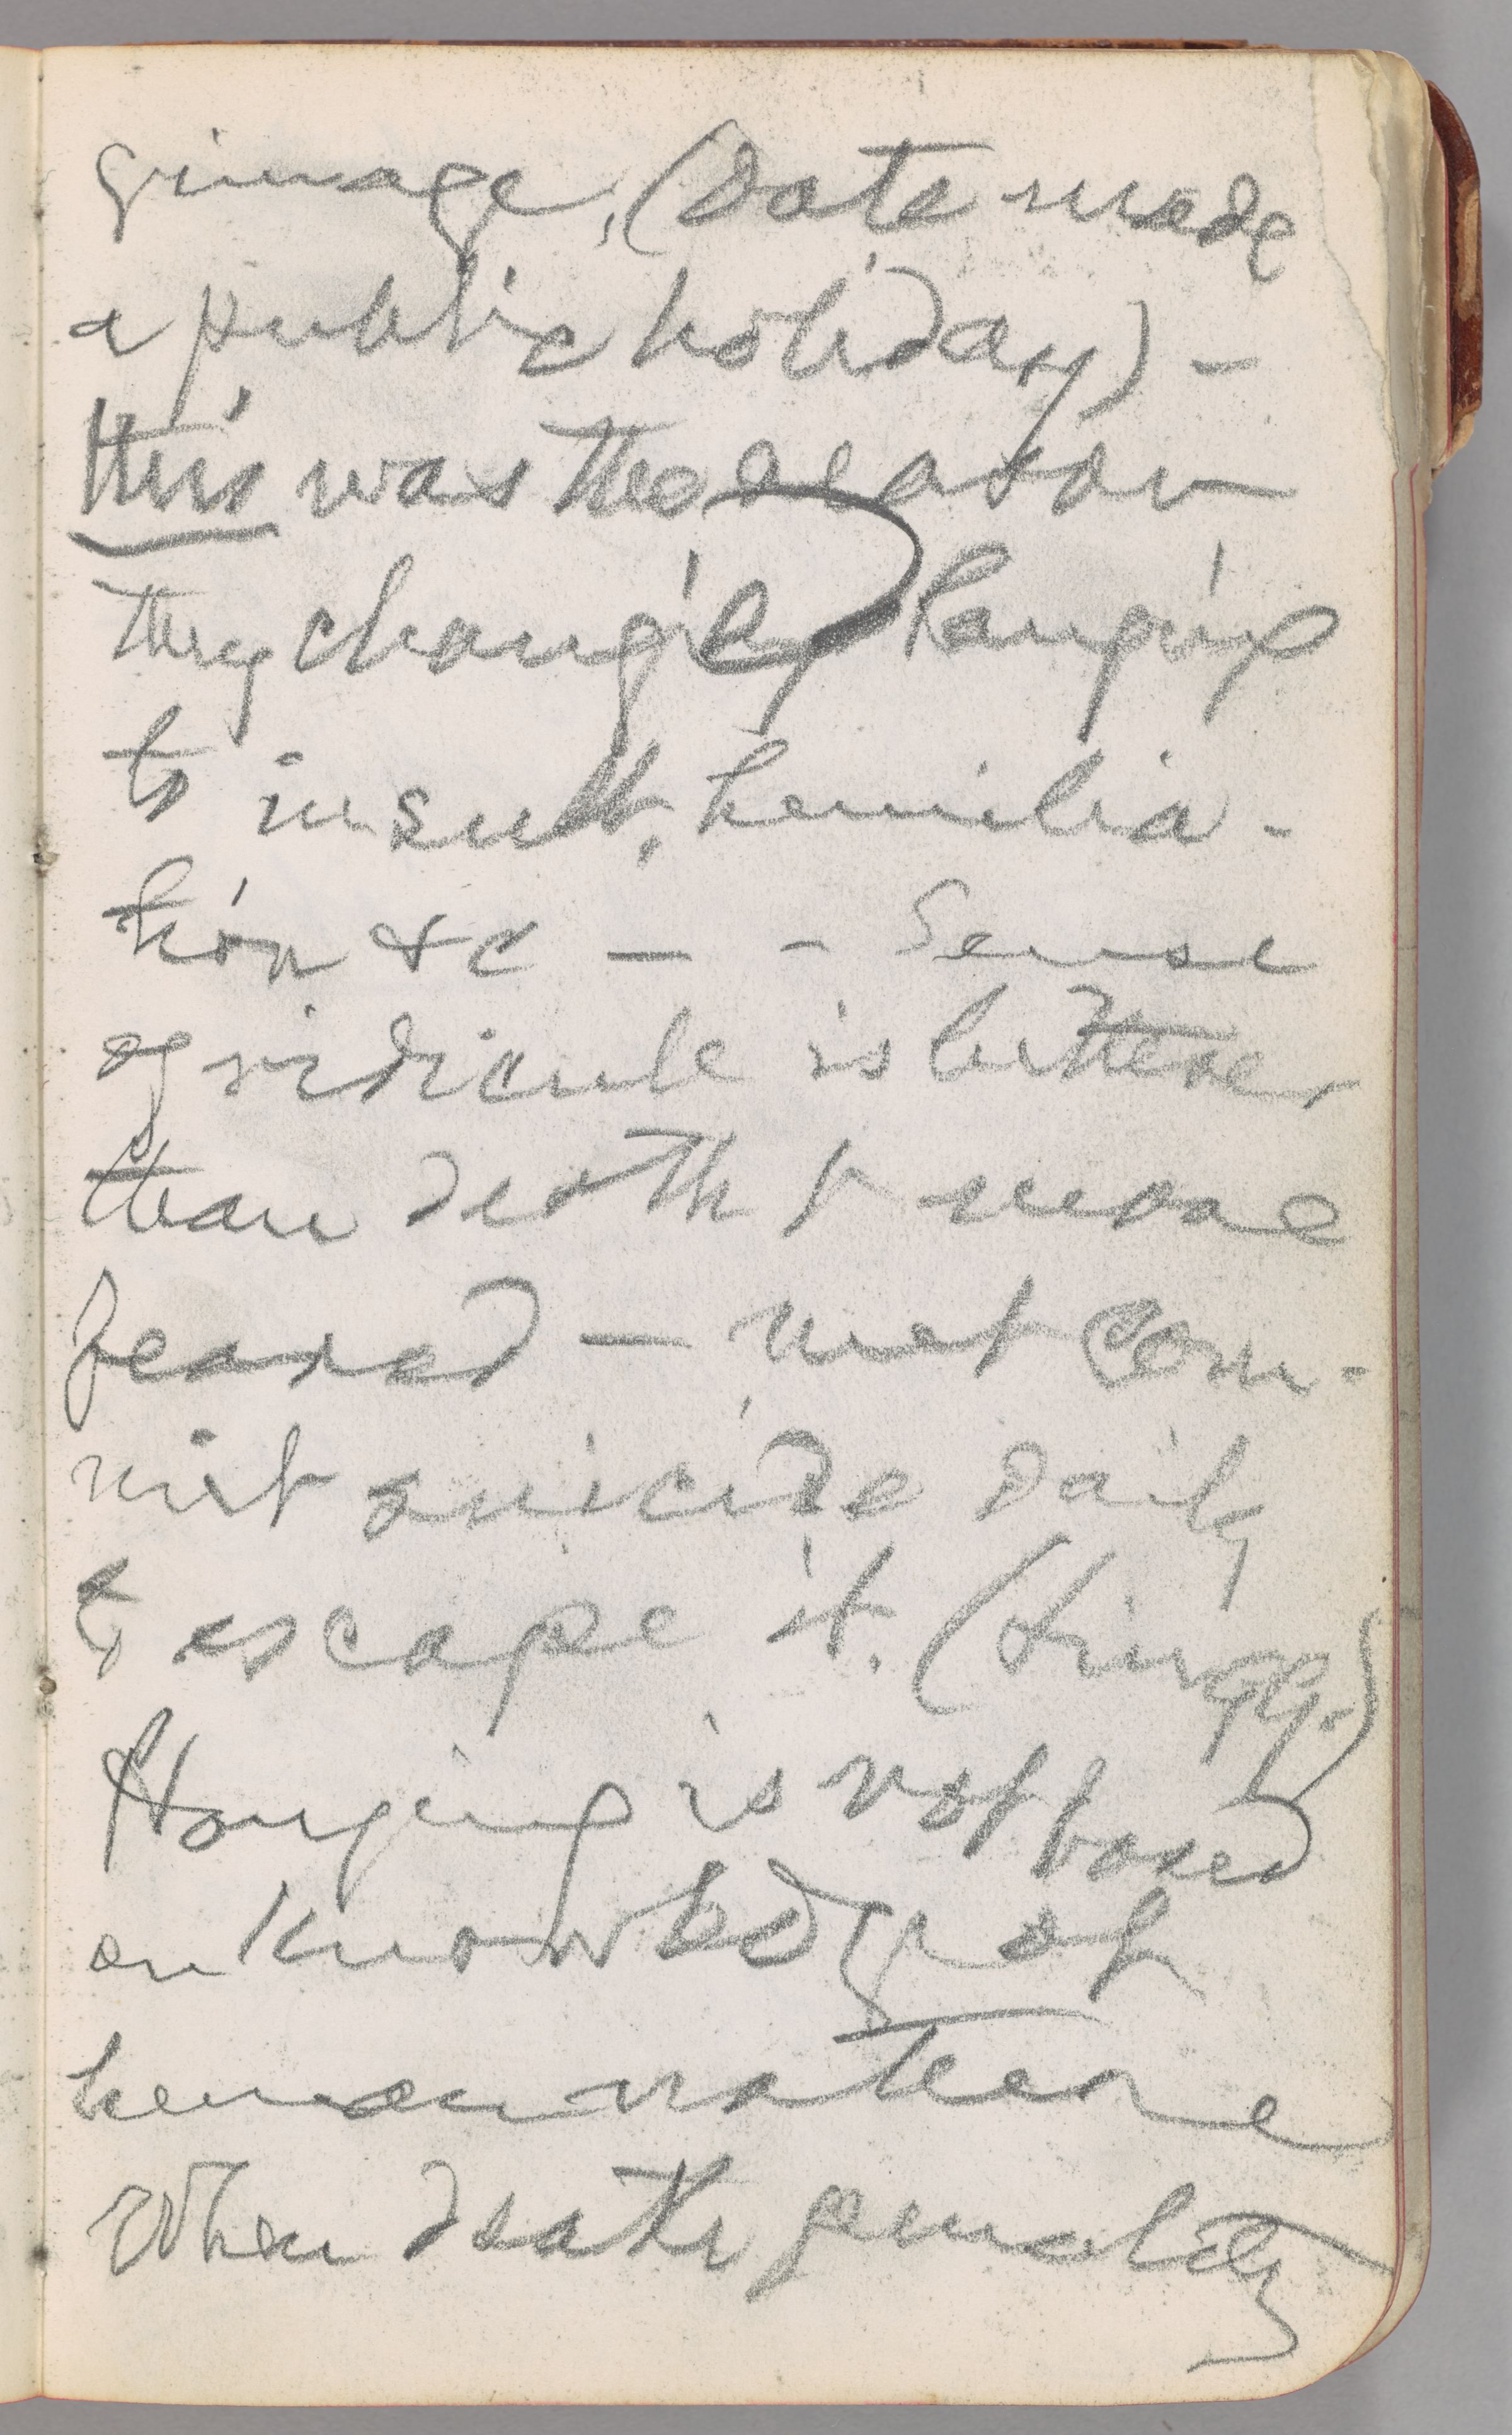 grimage, (Date made
a public holiday) –
this was the reason
they chang'ed hanging
to insult, humilia-
tion &c — – Sense
of ridicule is bitterer
than death & more
feared — met com-
mit suicide daily
to escape it. (Kingly.)
Hanging is not based
on knowledge of
human nature
When death penalty